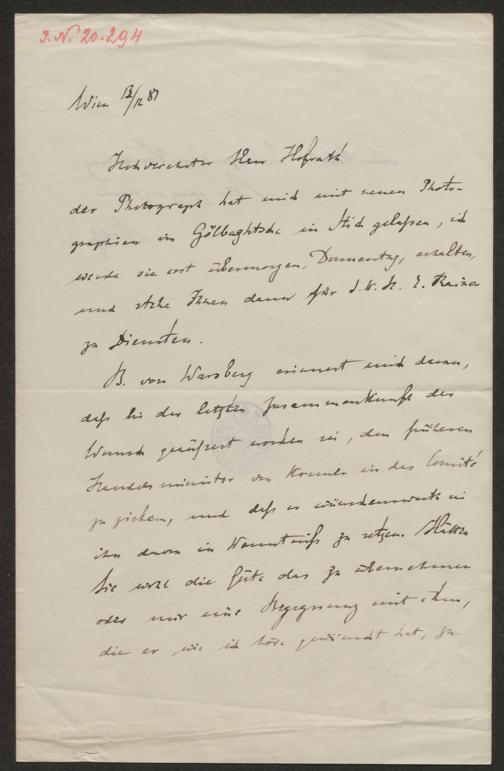 I.N. 20.294
Wien 13/12 81
Hochverehrter Herr Hofrath
der Photograph hat mich mit seinen Photo-
graphien von Gölbaghtsche in Stich gelassen, ich
werde sie erst übermorgen, Donnerstag, erhalten,
und stehe Ihnen dann für S. K. H. E. Rainer
zu Diensten.
B. von Warsberg erinnert mich daran,
daß bei der letzten Zusammenkunft der
Wunsch geäußert worden sei, den früheren
Handelsminister von Kremer in das Comité
zu ziehen, und daß es wünschenswerth sei
ihn davon in Kenntniß zu setzen. Hätten
Sie wohl die Güte das zu übernehmen
oder mir eine Begegnung mit ihm,
die er wie ich höre gewünscht hat, zu